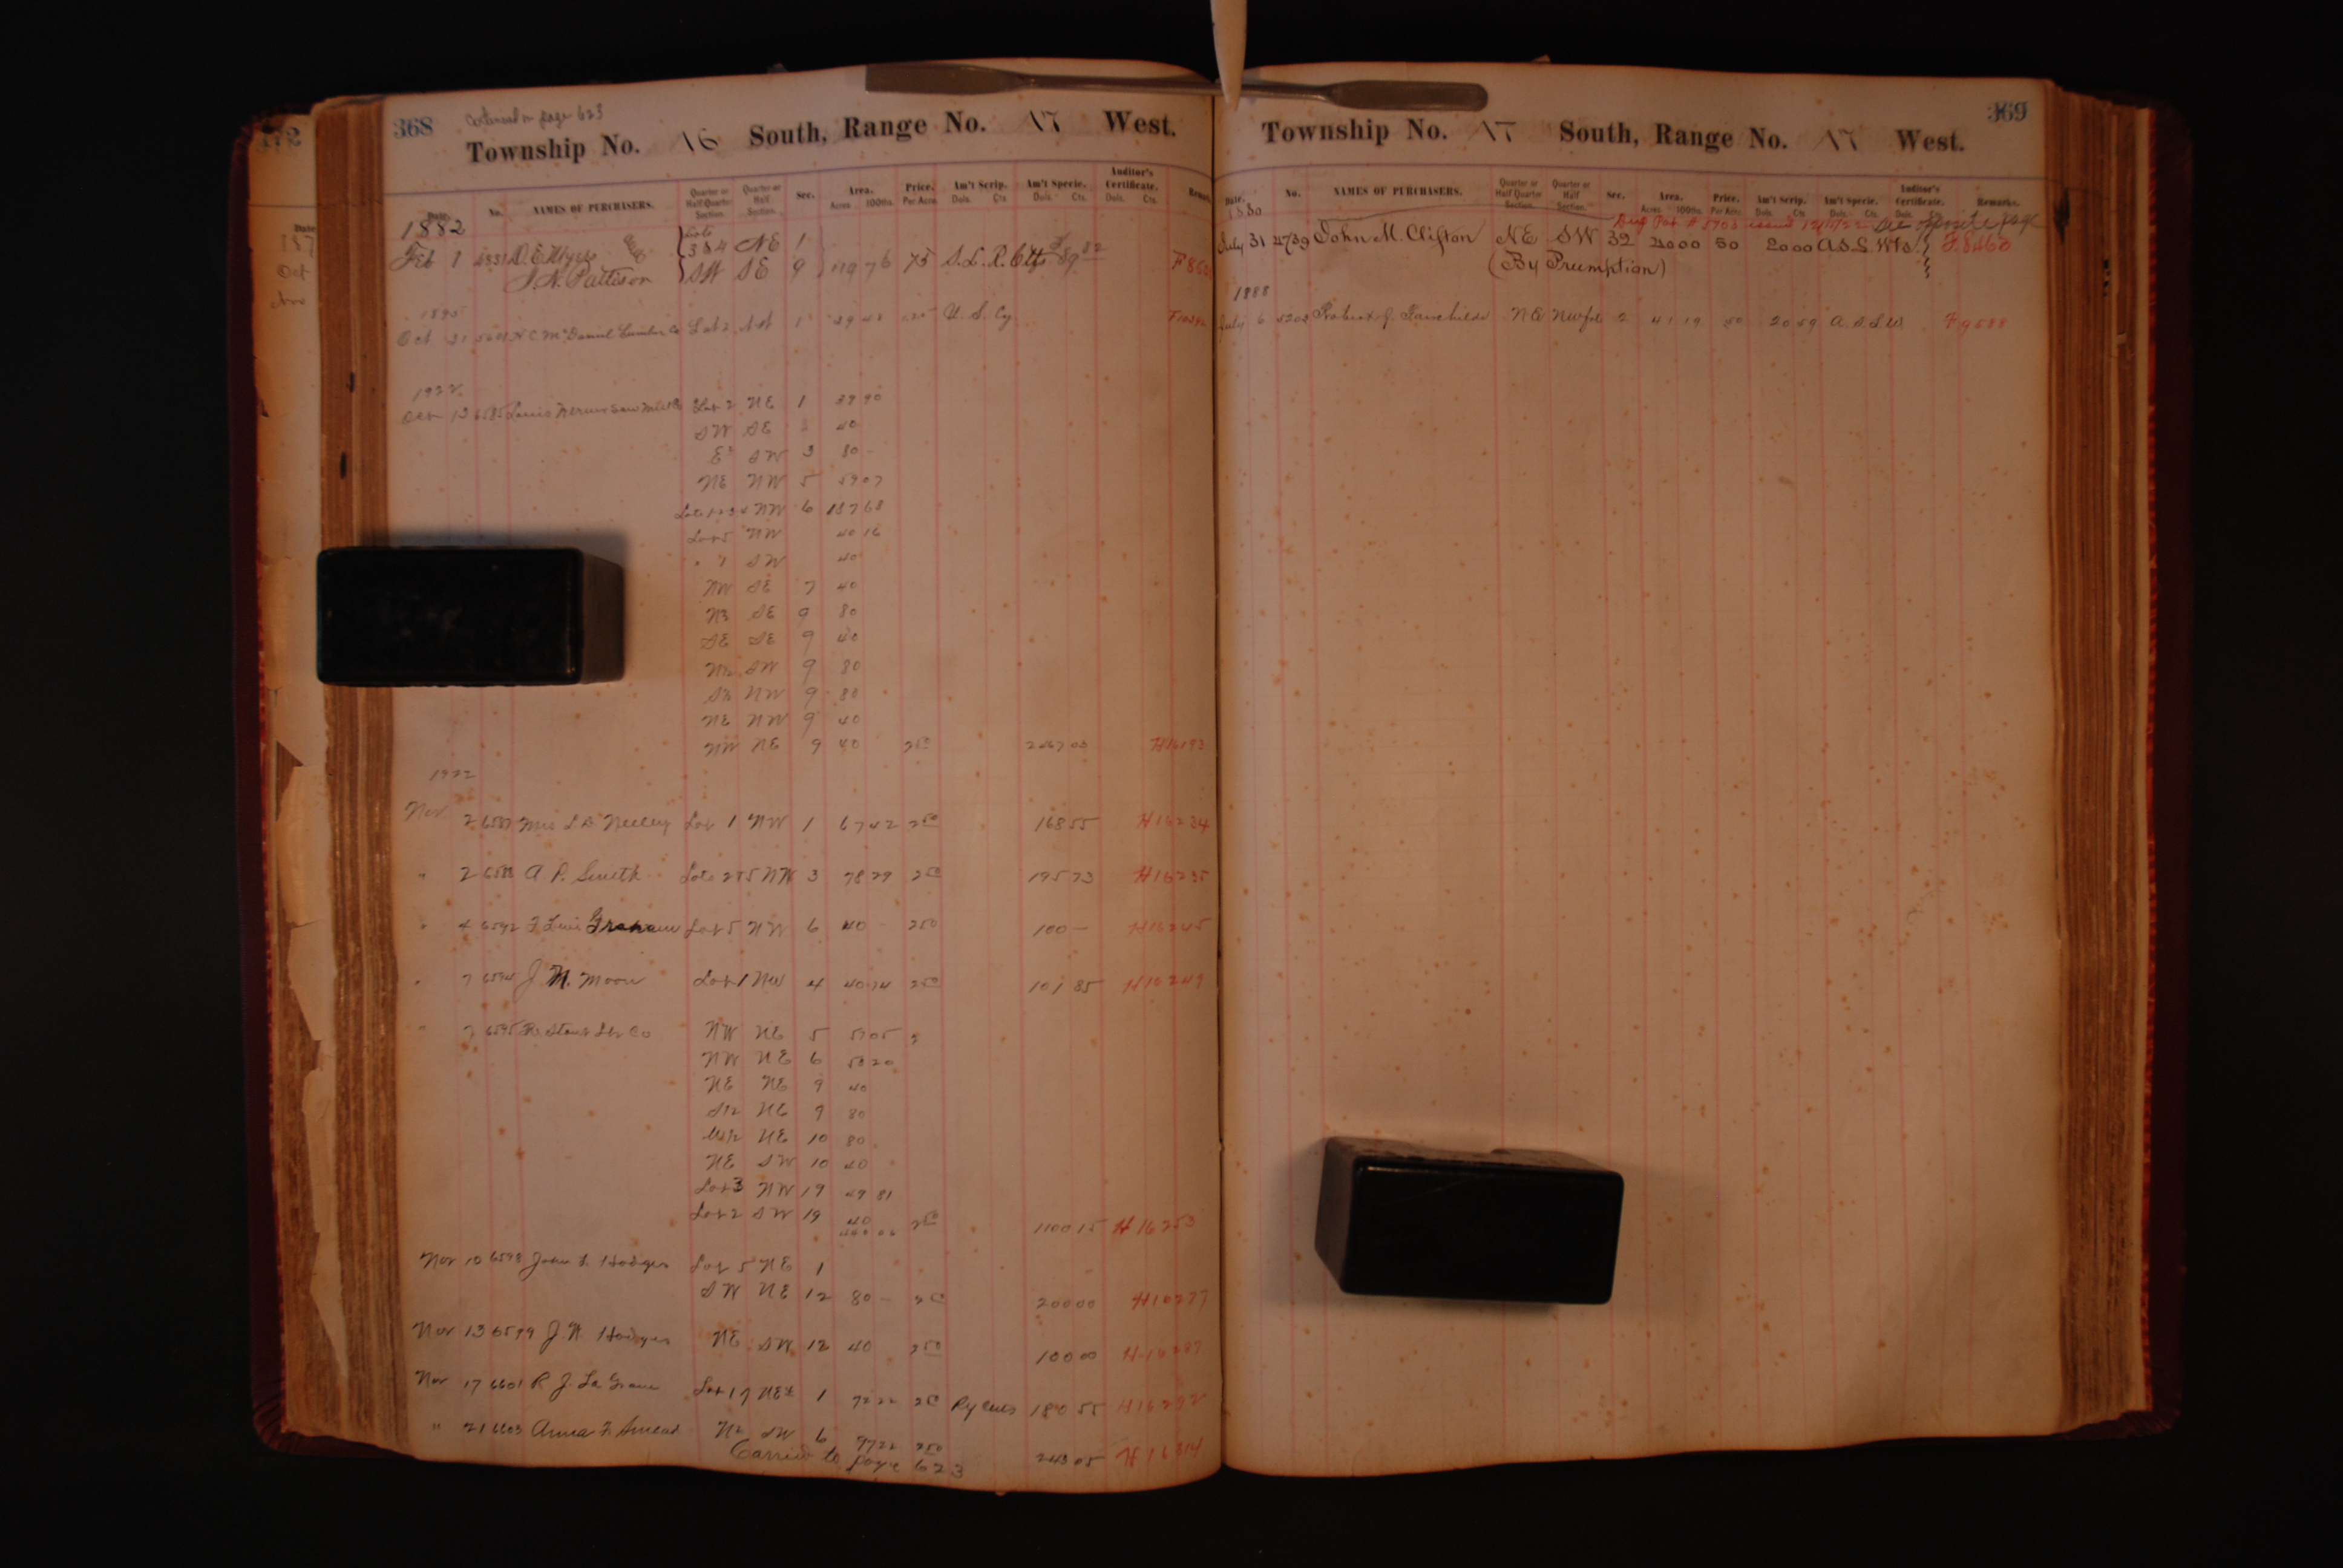 172
Date
187
Oct
368 Continued on page 623
Township No. 16 South, Range No. 17 West.
Date. No. NAMES OF PURCHASERS. Quarter or Half Quarter Section. Quarter or Half Section. Sec. Area. Acres 100ths. Price. Per Acre. Am't Scrip. Dols. Cts. Am't Specie. Dols. Cts. Auditor's Certificate. Dols. Cts. Remarks
1882
Feb 1 4831 D. E. Wyer Lots 3 & 4 NE 1
J. N. Pattison SW SE 9 119 76 75 S. L. R. Ctfs 89 82 F 86
1895
Oct 31 N C McDaniel Lumber Co Lot 2 1 39 48 U. S. Cy.
1922
Oct 13 6585 Louis Werner Saw Mill Co Lot 2 NE 1 39 90
SW SE 40
E2 SW 3 80 -
NE NW 5 59 07
Lots NW 6 187 68
Lot 5 NW 40 16
" 7 SW 40
NW SE 7 40
N2 SE 9 80
SE SE 9 40
N2 SW 9 80
S2 NW 9 80
NE NW 9 40
NW NE 9 40 2 50 2267 03 H16193
1922
Nov 2 6587 Mrs L D Neeley Lot 1 NW 1 67 42 2 50 168 55 H16234
" 2 6588 A. P. Smith Lots 2 & 5 NW 3 78 29 2 50 195 73 H16235
" 4 6592 Graham Lot 5 NW 6 40 - 2 50 100 - H16245
" 7 6594 J. M. Moore Lot 1 NW 4 40 74 2 50 101 85 H16249
" 7 6595 Lbr Co NW NE 5 57 05
NW NE 6 58 20
NE NE 9 40
S2 NE 9 80
W2 NE 10 80
NE SW 10 40
Lot 3 NW 19 49 81
Lot 2 SW 19 40 2 50 1100 15 H16253
Nov 10 6598 John L. Hodges Lot 5 NE 1
SW NE 12 80 - 2 50 200 00 H16277
Nov 13 6599 J. W. Hodges NE SW 12 40 2 50 100 00 H16287
Nov 17 6601 R. J. La Grone Lot 1 of NE4 1 72 22 2 50 180 55 H16292
" 21 6603 Anna F. Smead N2 SW 6 97 22 2 50 243 05 H16314
Carried to page 623
369
Township No. 17 South, Range No. 17 West.
Date. No. NAMES OF PURCHASERS. Quarter or Half Quarter Section. Quarter or Half Section. Sec. Area. Acres 100ths. Price. Per Acre. Am't Scrip. Dols. Cts. Am't Specie. Dols. Cts. Auditor's Certificate. Dols. Cts. Remarks.
1880
Pat # 5703 issued See opposite page
July 31 4739 John M. Clifton NE SW 32 40 00 50 20 00 A.S.L.Wts. F.8460
(By Preumption)
1888
July 6 5203 Robert J. Fairchilds NE NWfrl 2 41 19 50 20 59 A.S.L.W. F9588